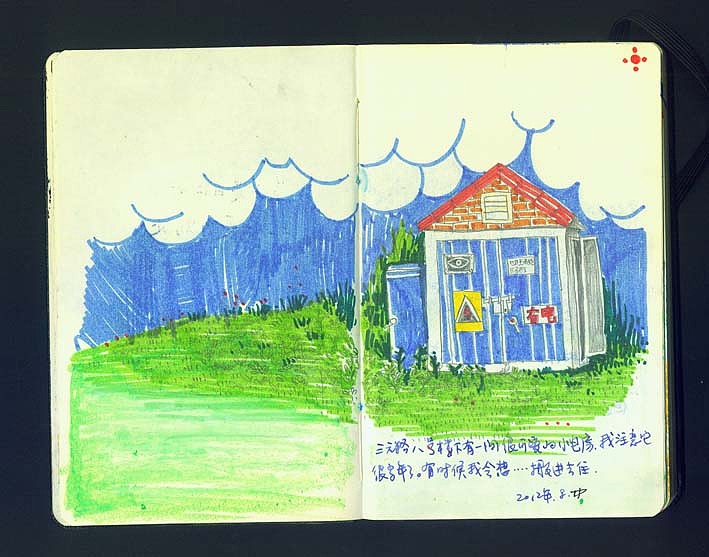 有电
三元路八号楼下有一间很可爱的小电房,我注意它
很多年了。有时候我会想····搬进去住.
2012年.8.